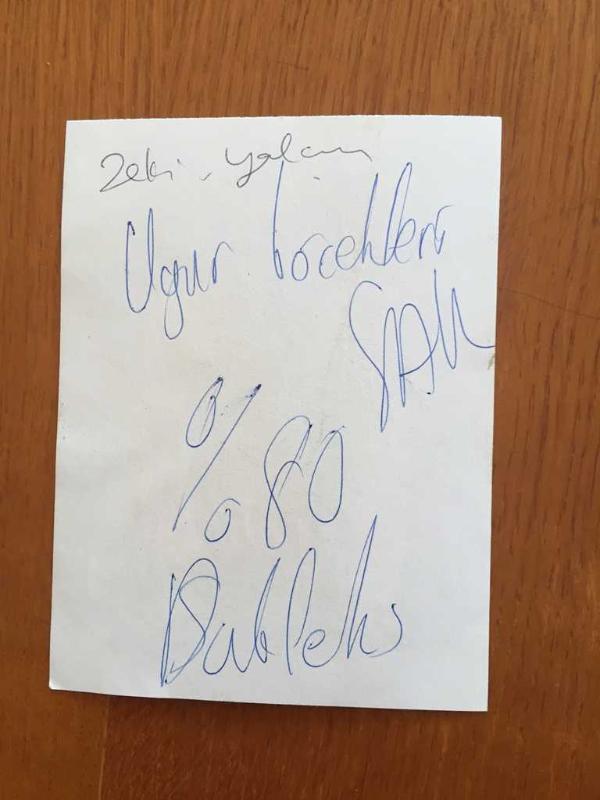 Zeki. yalçın
Uğur böcekleri
%80
Dableks